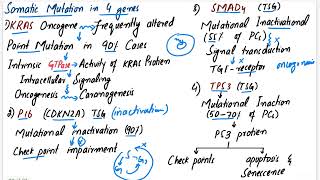 Somatic Mutation in 4 genes
1) KRAS Oncogene → frequently altered
Point Mutation in 90% Cases
Intrinsic GTPase → Activity of KRAS Protein
Intracellular Signaling
Oncogenesis ← Carcinogenesis
2) P16 (CDKN2A) TSG (inactivation)
Mutational inactivation (90%)
Check point impairment
S
G2
3) SMAD4 (TSG)
Mutational Inactivational
(55% of PCs)
Signal transduction
TGF-receptor
oncogenesis
4) TP53 (TSG)
Mutational Inaction
(50-70% of PCs)
P53 protien
Check points
apoptosis &
Senescence